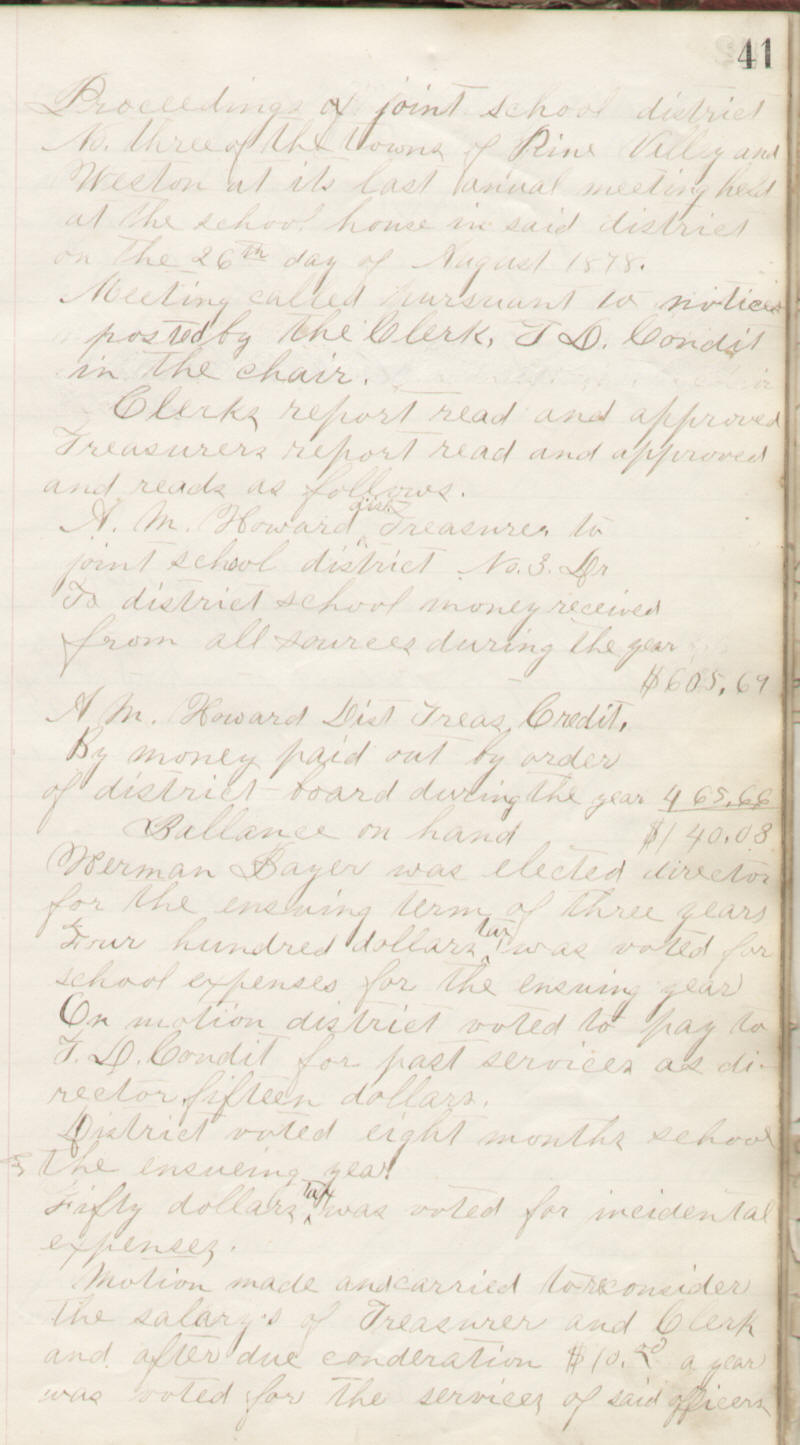 41
Proceedings of joint school district
No. three of the towns of Pine Valley and
Weston at its last anual meeting held
at the school house in said district
on the 26th day of August 1878.
Meeting called pursuant to notices
posted by the Clerk, T. D. Condit
in the chair.
Clerks report read and approved
Treasurers report read and approved
and reads as follows.
A. M. Howard dist. Treasurer to
joint school district No. 3. Dr
To district school money received
from all sources during the year
$605,69
A M. Howard Dist Treas, Credit,
By money paid out by order
of district board during the year 465,66
Ballance on hand $140.03
Herman Bayer was elected director
for the ensuing term of three years
Four hundred dollars tax was voted for
school expenses for the ensuing year
On motion district voted to pay to
T. D. Condit for past services as di-
rector fifteen dollars.
District voted eight months school
the ensueing year
Fifty dollars tax was voted for incidental
expenses.
Motion made and carried to reconsider
the salary's of Treasurer and Clerk
and after due conderation $10. a year
was voted for the services of said officers